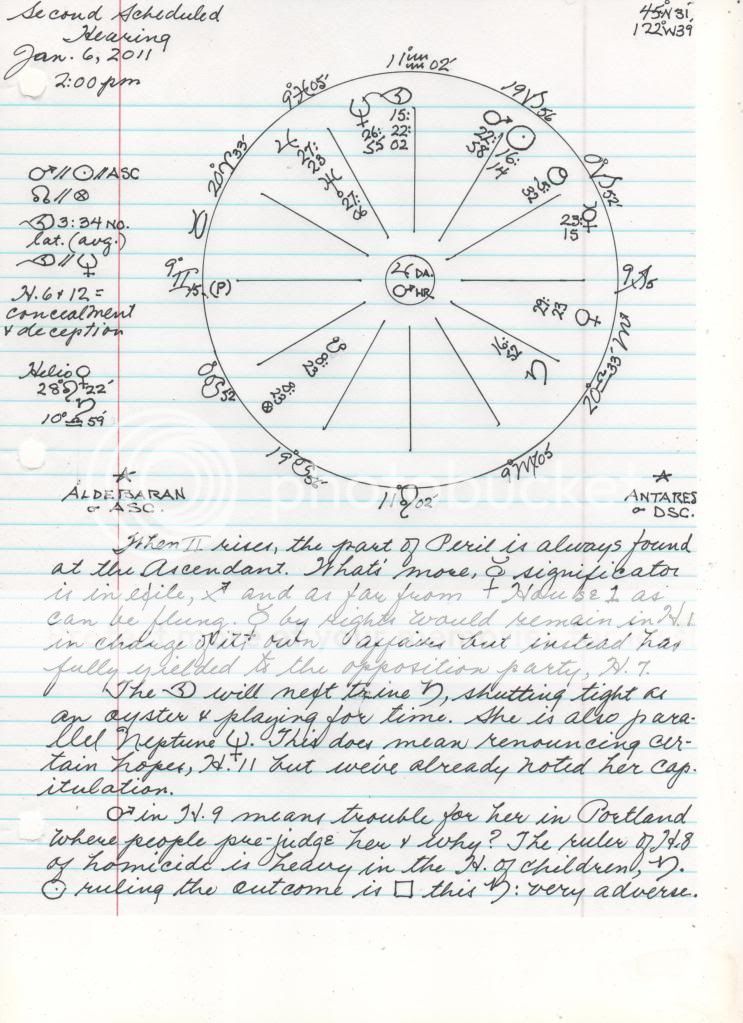 Second Scheduled
Hearing
Jan. 6, 2011
2:00 pm
45N31'
122W39'
11°♒02'
19♑56
0°♑52'
9♐15
20♏33'
9°♍05'
11♌02'
19°♋56'
0°♋52
9°♊15' (P)
20°♈33'
9°♓05'
♆ 26:55
☽ 15:22 02
♂ 22:58
☉ 16:14
☿ 23:15
♀ 29:23
♄ 16:52
⊗
♃ 27:23
♅ 27:06
♃ DA.
♂ HR.
♂//☉//ASC
☊//⊗
☽ 3:34 NO.
lat. (avg.)
☽//♆
H. 6 & 12 =
concealment
& deception
Helio ☿
28°♌22'
♄
10°♎59'
ALDEBARAN
☌ ASC.
ANTARES
☌ DSC.
photobucket
When ♊ rises, the part of Peril is always found
at the Ascendant. What's more, ☿ significator
is in exile, ♐ and as far from House 1 as
can be flung. ☿ by rights would remain in H.1
in charge of its own affairs but instead has
fully yielded to the opposition party, H.7.
The ☽ will next trine ♄, shutting tight as
an oyster & playing for time. She is also para-
llel Neptune ♆. This does mean renouncing cer-
tain hopes, H.11 but we've already noted her cap-
itulation.
♂ in H.9 means trouble for her in Portland
where people pre-judge her & why? The ruler of H.8
of homicide is heavy in the H. of children, ♄.
☉ ruling the outcome is □ this ♄: very adverse.